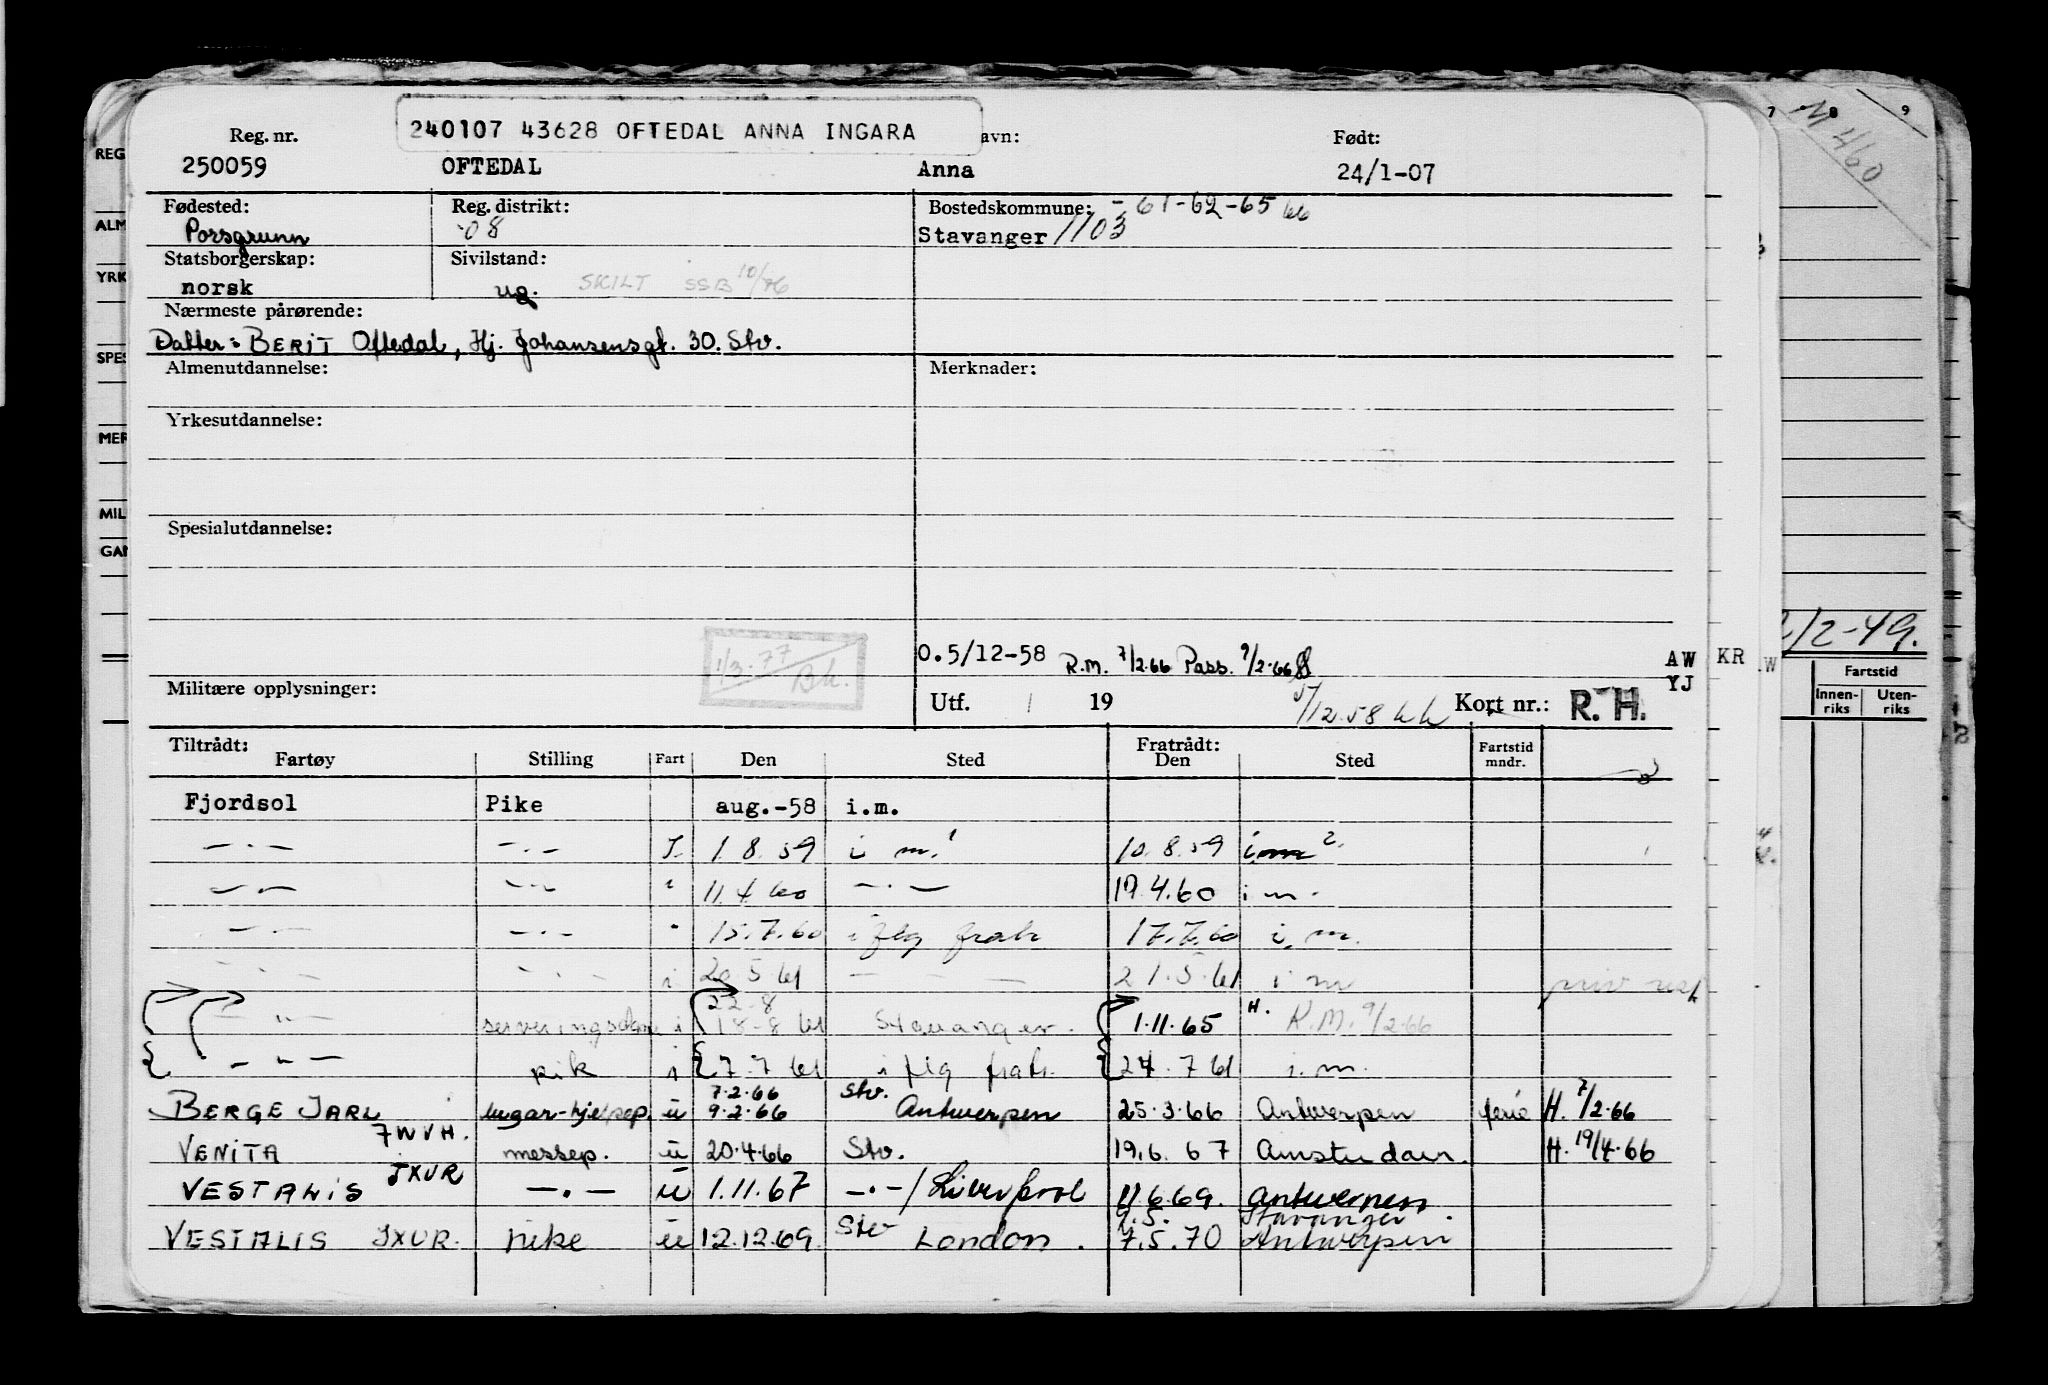 240107 43628 OFTEDAL ANNA INGARA
Reg. nr. avn: Født:
250059 OFTEDAL Anna 24/1-07
Fødested: Reg. distrikt: Bostedskommune: - 61-62-65 66
Porsgrunn 08 Stavanger 1103
Statsborgerskap: Sivilstand:
norsk ug. SKILT SSB 10/76
Nærmeste pårørende:
Datter: BERIT Oftedal, Hj. Johansensgt. 30. Stv.
Almenutdannelse: Merknader:
Yrkesutdannelse:
Spesialutdannelse:
1/3.77 Bh.
0.5/12-58 R.M. 7/2.66 Pass. 9/2.66
AW KR W
YJ
Militære opplysninger: Utf. 19 5/12.58 Kort nr.: R. H.
Tiltrådt: Fratrådt:
Fartøy Stilling Fart Den Sted Den Sted Fartstid mndr.
Fjordsol Pike aug.-58 i.m.
— · — — · — I. 1.8.59 i m. 1 10.8.59 i.m 2.
— · — — · — " 11.4.60 — · — 19.4.60 i m.
— · — — · — " 15.7.60 i flg fratr 17.7.60 i. m.
— · — — · — i 20.5.61 — — — 21.5.61 i m priv
22-8
— " — i 18-8 61 Stavanger. 1.11.65 H. R.M. 9/2-66
— " — pik i 7.7 61 i flg fratr. 24.7 61 i.m.
7.2.66 Stv.
BERGE JARL lugar-hjelpep. ü 9.2.66 Antwerpen 25.3.66 Antwerpen ferie H. 7/2.66
7WVH.
VENITA messep. ü 20.4.66 Stv. 19.6.67 Amsterdam. H. 19/4.66
JXUR
VESTALIS — · — ü 1.11.67 — · — / Liverpool 11.6.69. Antwerpen
Stv 7.5. Stavanger.
VESTALIS JXUR. pike ü 12.12.69. London. 7.5.70 Antwerpen
REG
ALM
YRK
SPES
MER
MIL
GAN
7 8 9
M 460
2/2-49.
Fartstid
Innen-riks Uten-riks